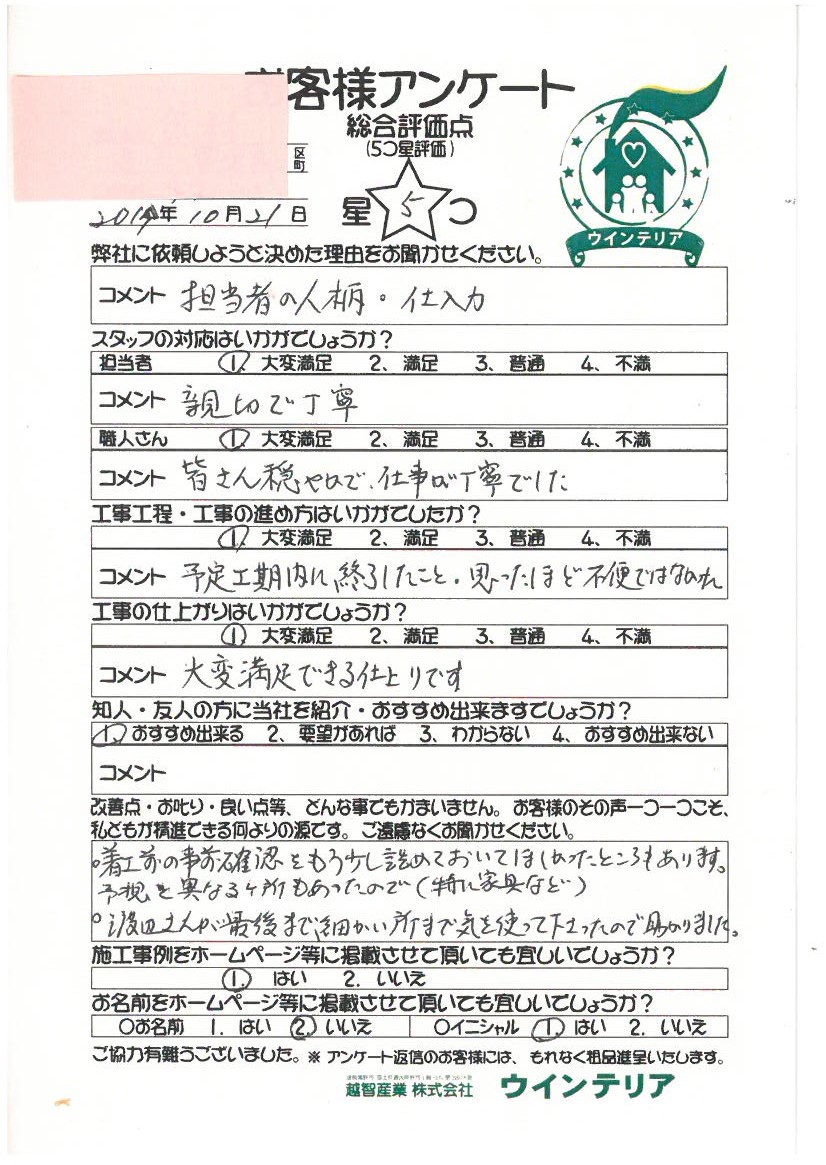 客様アンケート
総合評価点
(5つ星評価)
区
町
年10月21日
星5つ
ウインテリア
弊社に依頼しようと決めた理由をお聞かせください。
コメント 担当者の人柄。仕入力
スタッフの対応はいかがでしょうか?
担当者 1. 大変満足 2、満足 3、普通 4、不満
コメント 親切で丁寧
職人さん 1. 大変満足 2、満足 3、普通 4、不満
コメント 皆さん穏やかで、仕事が丁寧でした
工事工程・工事の進め方はいかがでしたか?
1. 大変満足 2、満足 3、普通 4、不満
コメント 予定工期内に終了したこと。思ったほど不便ではなかった
工事の仕上がりはいかがでしょうか?
1. 大変満足 2、満足 3、普通 4、不満
コメント 大変満足できる仕上りです
知人・友人の方に当社を紹介・おすすめ出来ますでしょうか?
1. おすすめ出来る 2、要望があれば 3、わからない 4、おすすめ出来ない
コメント
改善点・お叱り・良い点等、どんな事でもかまいません。お客様のその声一つ一つこそ、
私どもが精進できる何よりの源です。ご遠慮なくお聞かせください。
○着工前の事前確認をもう少し詰めておいてほしかったところもあります。
予想と異なるヶ所もあったので(特に家具など)
○渡辺さんが最後まで細かい所まで気を使って下さったので助かりました。
施工事例をホームページ等に掲載させて頂いても宜しいでしょうか?
1. はい 2. いいえ
お名前をホームページ等に掲載させて頂いても宜しいでしょうか?
○お名前 1. はい 2. いいえ ○イニシャル 1. はい 2. いいえ
ご協力有難うございました。※ アンケート返信のお客様には、もれなく粗品進呈いたします。
越智産業 株式会社 ウインテリア